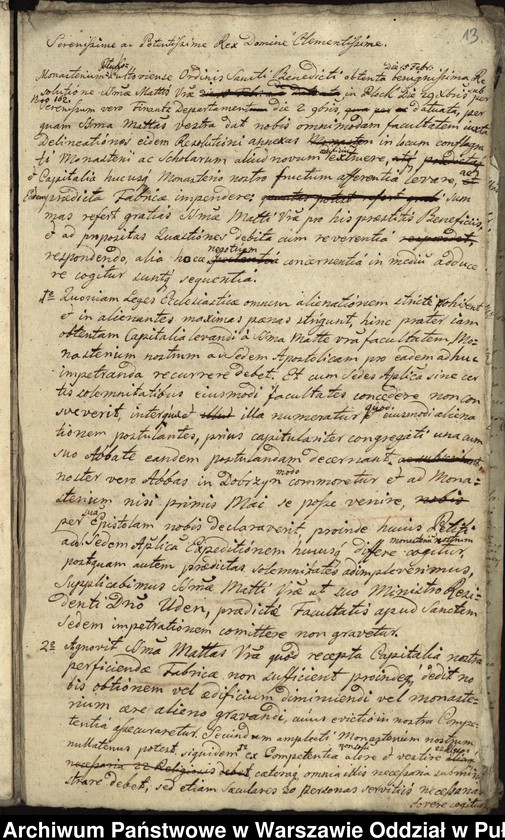 13
Serenissime ac Potentissime Rex Domine Clementissime.
Monasterium Pultoviense Ordinis Sancti Benedicti obtenta benignissima Re
solutione Sṃæ Mattis Vræ in Plock die 29 Xbris per
Serenissum vero Finantz Departamentum die 2 gbris datuata, per
quam Sṃa Mattas vestra dat nobis omnimodam facultatem iuxta
delineationes eidem Resolutioni annexas in locum conflagra
ti Monasterii ac Scholarum aliud novum extruere,
& Capitalia hucusq Monasterio nostro fructum afferentia levare, ac
prædictæ Fabricæ impendere; sum
mas refert gratias Sṃæ Matti Vræ pro his præstitis Beneficiis,
& ad præpositas Quæstiones debita cum reverentia
respondendo, alia hocce negotium concernentia in mediū adduce
re cogitur suntq sequentia.
1o Quoniam Leges Ecclesiasticæ omnem alienationem stricte prohibent
& in alienantes maximas pænas stringunt, hinc præter iam
obtentam Capitalia levandi à Sṃa Matte vra facultatem Mo-
nasterium nostrum a Sedem Apostolicam pro eadem adhuc
impetranda recurrere debet. Et cum Sedes Aplica sine cer
tis solemnitatibus eiusmodi facultates concedere non con
sveverit, interquæ illa numeratur quod eiusmodi aliena
tionem postulantes, prius capitulariter congregati una cum
suo Abbate eandem postulandam decernant,
noster vero Abbas in Dobrzyn modo commoretur et ad Mona-
sterium nisi primis Mai se posse venire,
per suam Epistolam nobis declaraverit, proinde huius Petiti
ad Sedem Aplicā Expeditionem hucusq differre monasterium nostrum cogitur,
postquam autem prædictas solemnitates adimpleverimus,
Supplicabimus Sṃæ Matti Vræ ut suo Ministro Resi-
denti Dno Uden, prædictæ Facultatis apud Sanctam
Sedem impetrationem comittere non gravetur.
2o Agnovit Sṃa Mattas Vra quod recepta Capitalia nostra
perficiendæ Fabricæ non sufficient proindeq dedit no
bis obtionem vel ædificium diminuendi vel monaste-
rium ære alieno gravandi, cuius evictio in nostra Compe-
tentia assecuraretur. Secundum amplecti Monasterium nostrum
nullatenus potest, siquidem ex Competentia alere & vestire
cæteraq omnia illis necessaria submini
strare debet, sed etiam sæculares 20 personas servitiis necessarias
fovere cogitur
Archiwum Państwowe w Warszawie Oddział w Puł